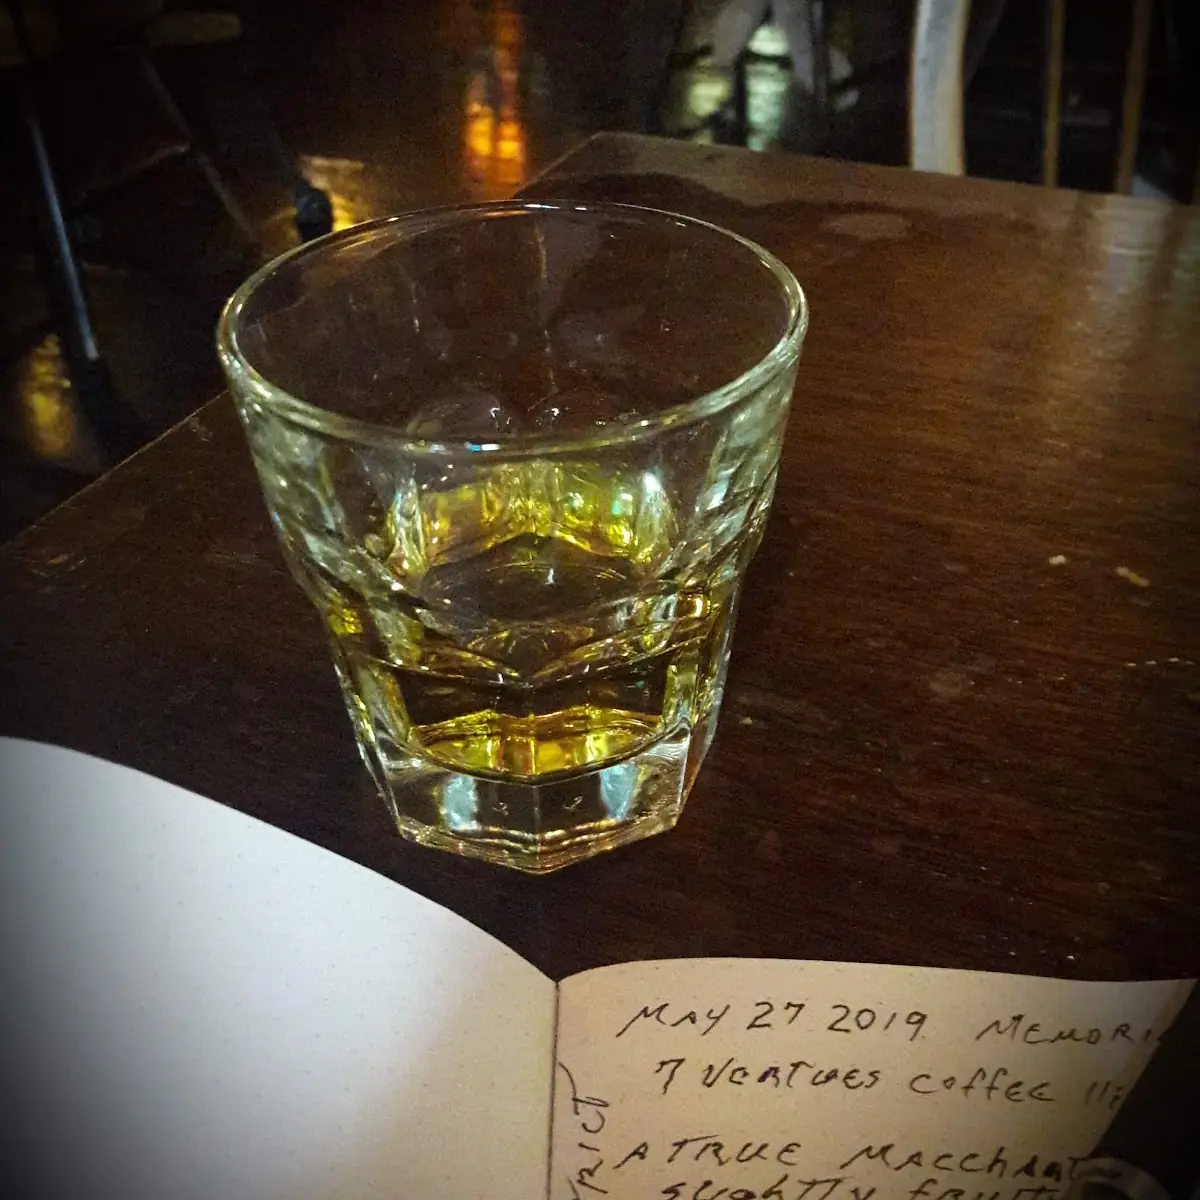 MAY 27 2019 MEMORI
7 VERTUES COFFEE 11:
A TRUE MACCHIAT
SLIGHTLY FRUIT
RICT